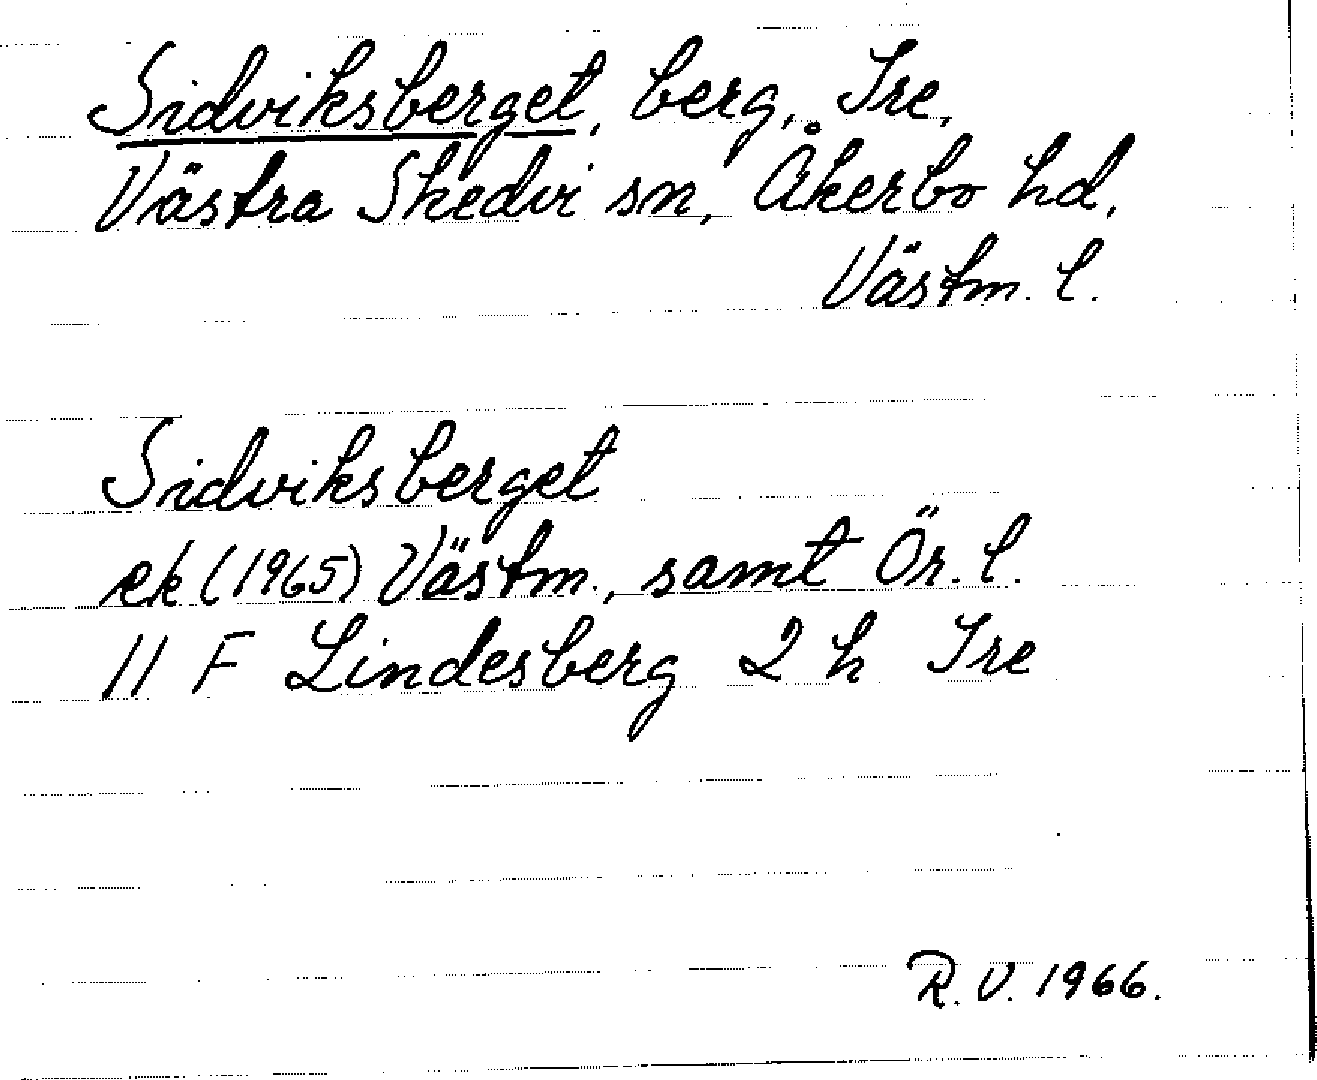 Sidviksberget, berg, Tre,
Västra Skedvi sn, Åkerbo hd,
Västm. l.
Sidviksberget
ek (1965) Västm., samt Ör. l.
11 F Lindesberg 2 h Tre
R.V. 1966.